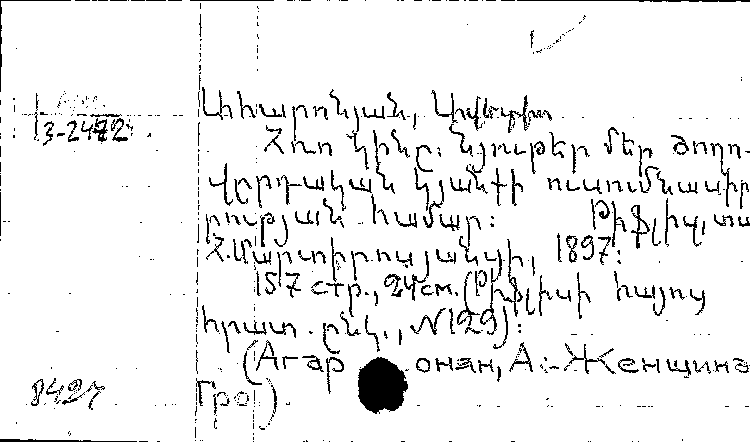 Ահարոնյան, Ավետիս
3-2472.
Հայ կինը։ Նյութեր մեր ժողո-
վրդական կյանքի ուսումնասիր
րության համար։ Թիֆլիս, տպ
Հ. Մարտիրոսյանցի, 1897։
157 стр., 24 см. (Թիֆլիսի հայոց
հրատ. ընկ., №129)։
(Агар онян, А.-Женщина
8427 Гро).